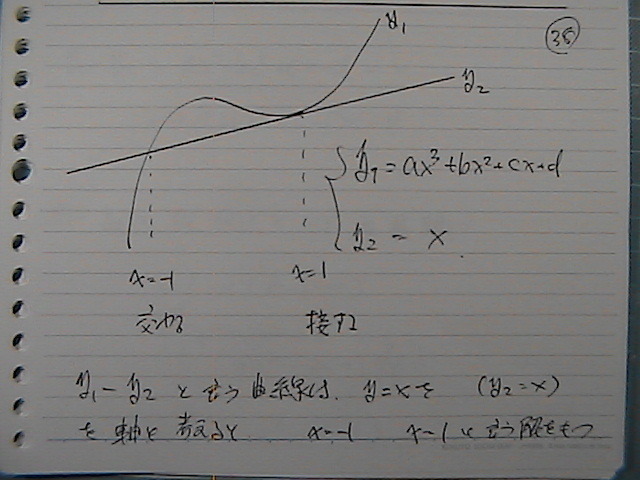 38
y₁
y₂
y₁ = ax³+bx²+cx+d
y₂ = x
x=-1
x=1
交わる
接する
y₁-y₂ と言う曲線は、y=xを (y₂=x)
を軸と考えると x=-1 x=1 と言う解をもつ